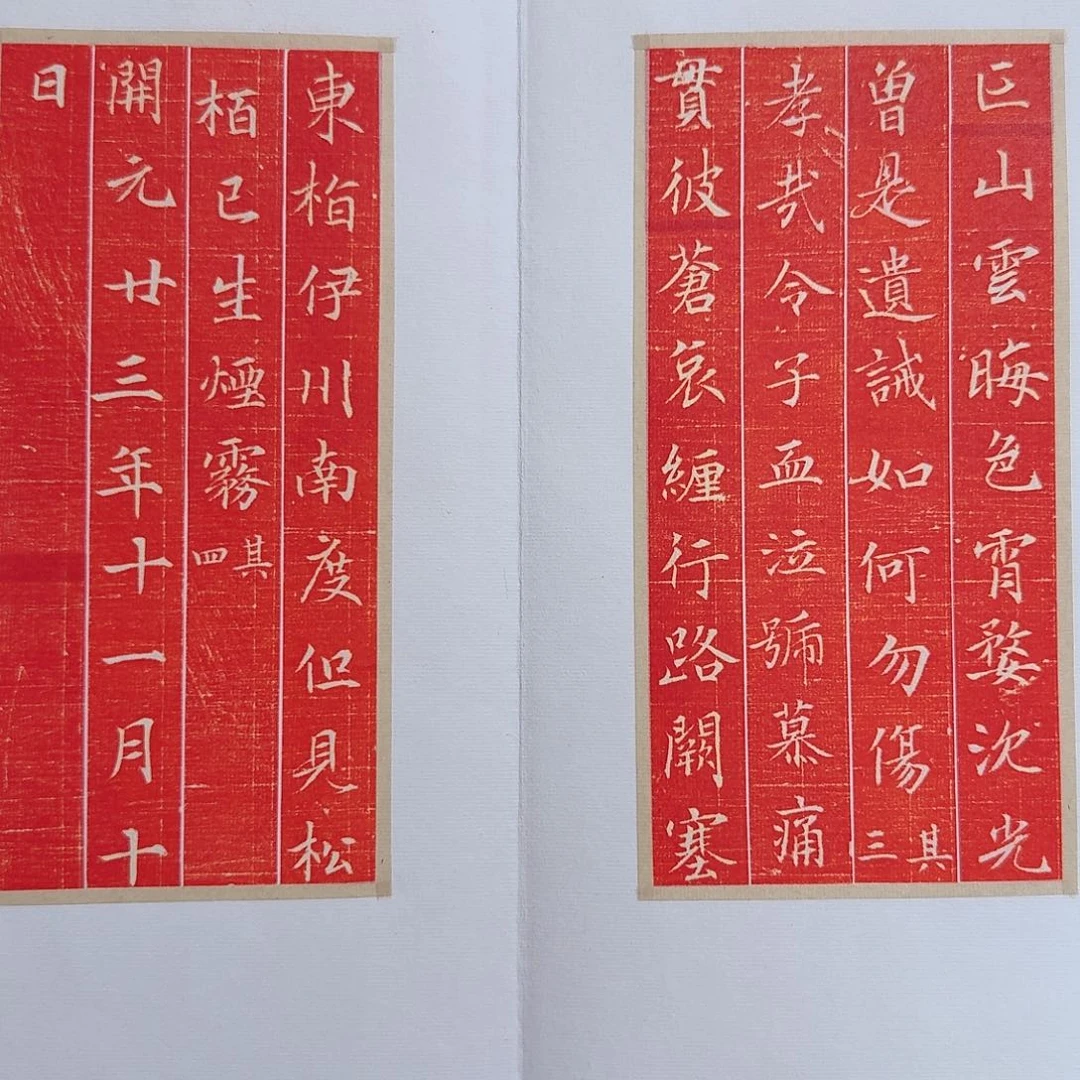 山雲晦色霄婺沉光
曾是遺誡如何勿傷其三
孝哉令子血泣號慕痛
貫彼蒼哀纏行路闕塞
東栢伊川南度但見松
栢已生煙霧其四
開元廿三年十一月十
日